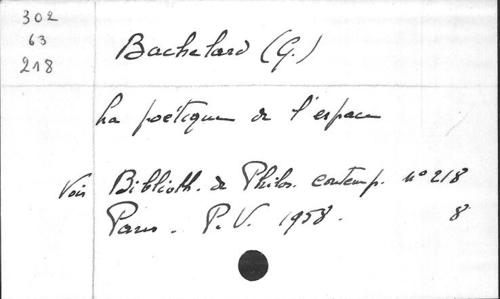 302
63
218
Bachelard (G.)
La poétique de l'espace
Voir Biblioth. de Philos. contemp. n° 218
Paris. P.V. 1958. 8